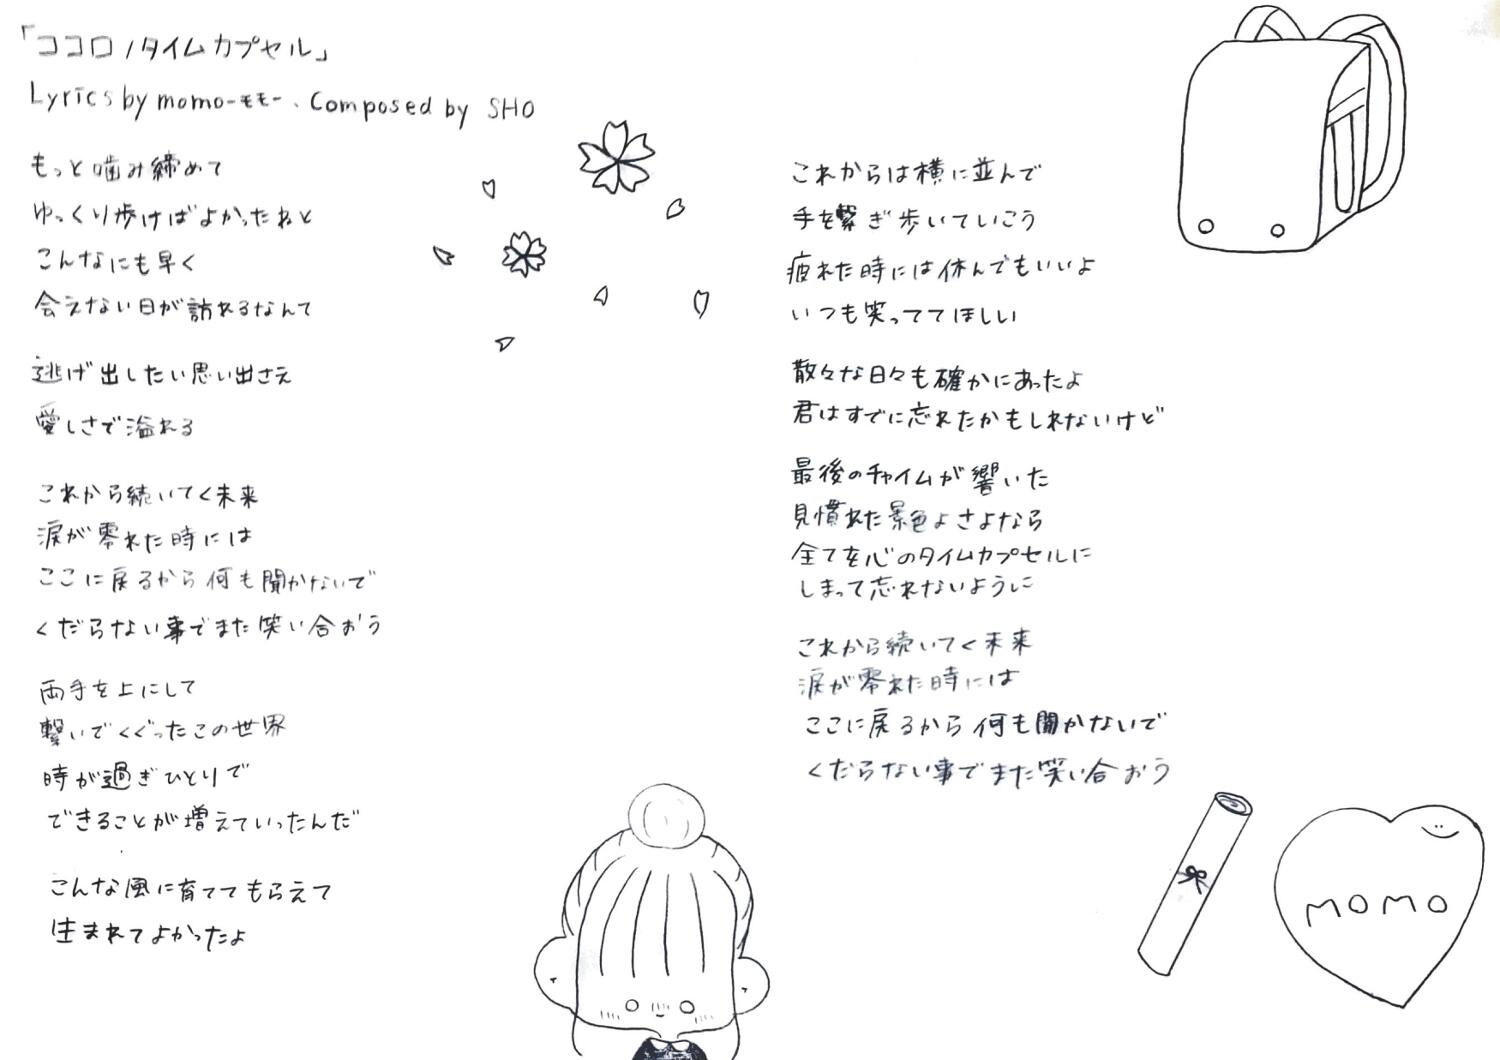 「ココロノタイムカプセル」
Lyrics by momo-モモー. Composed by SHO
もっと噛み締めて
ゆっくり歩けばよかったねと
こんなにも早く
会えない日が訪れるなんて
逃げ出したい思い出さえ
愛しさで溢れる
これから続いてく未来
涙が零れた時には
ここに戻るから何も聞かないで
くだらない事でまた笑い合おう
両手を上にして
繋いでくぐったこの世界
時が過ぎひとりで
できることが増えていったんだ
こんな風に育ててもらえて
生まれてよかったよ
これからは横に並んで
手を繋ぎ歩いていこう
疲れた時には休んでもいいよ
いつも笑っててほしい
散々な日々も確かにあったよ
君はすでに忘れたかもしれないけど
最後のチャイムが響いた
見慣れた景色よさよなら
全てを心のタイムカプセルに
しまって忘れないように
これから続いてく未来
涙が零れた時には
ここに戻るから何も聞かないで
くだらない事でまた笑い合おう
MOMO